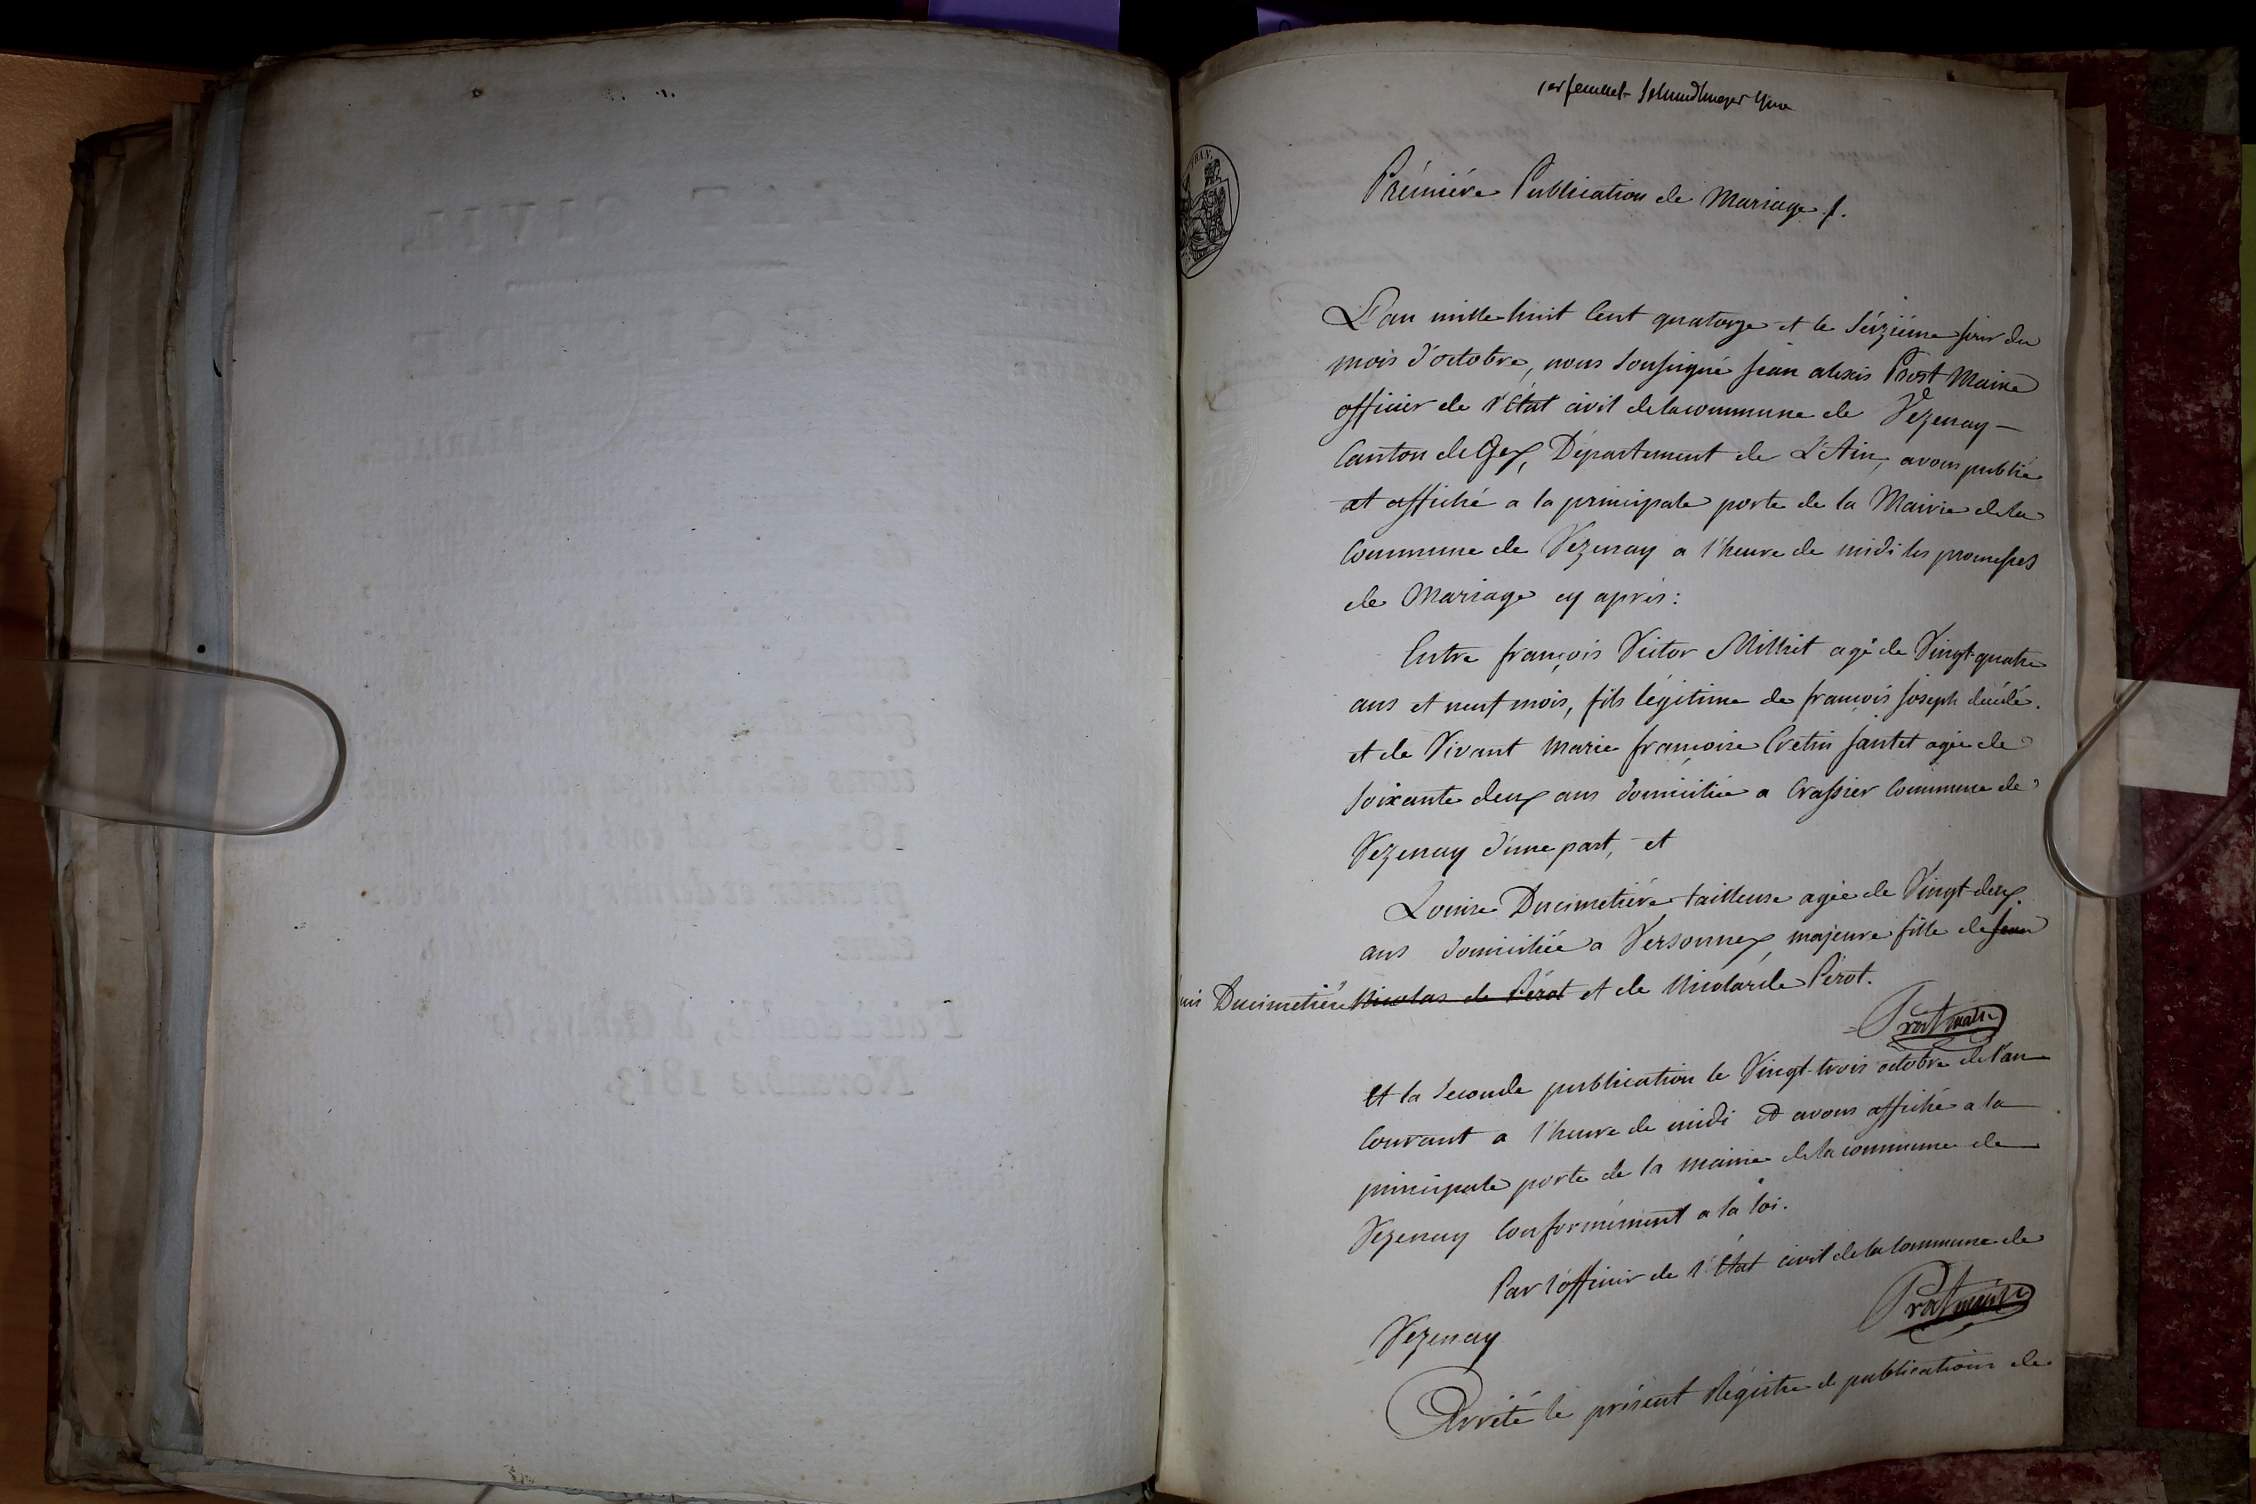 1er feuillet
Prémiére Publication de Mariage
L'an mille huit Cent quatorze et le Séiziéme jour du
mois d'octobre, nous Soussigné jean alexis Prost Maire
officier de l'état civil de la commune de Vezenay
Canton de Gex, Département de L'Ain, avons publié
et affiché a la principale porte de la Mairie de la
Commune de Vezenay a l'heure de midi les promesses
de Mariage cy aprés:
Entre françois Victor Millict agé de Vingt-quatre
ans et neuf mois, fils légitime de françois joseph décédé.
et de Vivant Marie françoise Cretin jantet agée de
Soixante deux ans domiciliée a Crassier Commune de
Vezenay d'une part, et
Louise Ducimetiére tailleuse agée de Vingt-deux
ans domiciliée a Versonnex, majeure fille de jean
Ducimetiére Nicolas de Pérot et de Nicolarde Pérot.
Prost maire
Et la Seconde publication le Vingt-trois octobre de l'an
Courant a l'heure de midi et avons affiché a la
principale porte de la mairie de la commune de
Vezenay Conformément a la loi.
Par l'officier de l'État civil de la Commune de
Vezenay
Prost maire
Arrété le présent Régistre de publications de